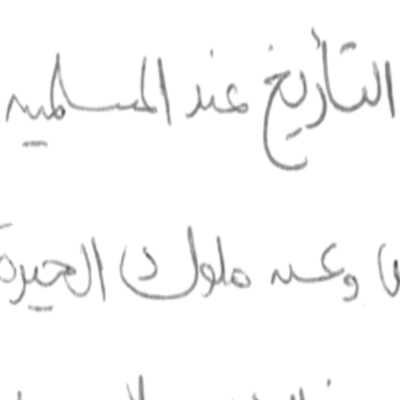 التأريخ عند المسلمين
وعند ملوك الحيرة